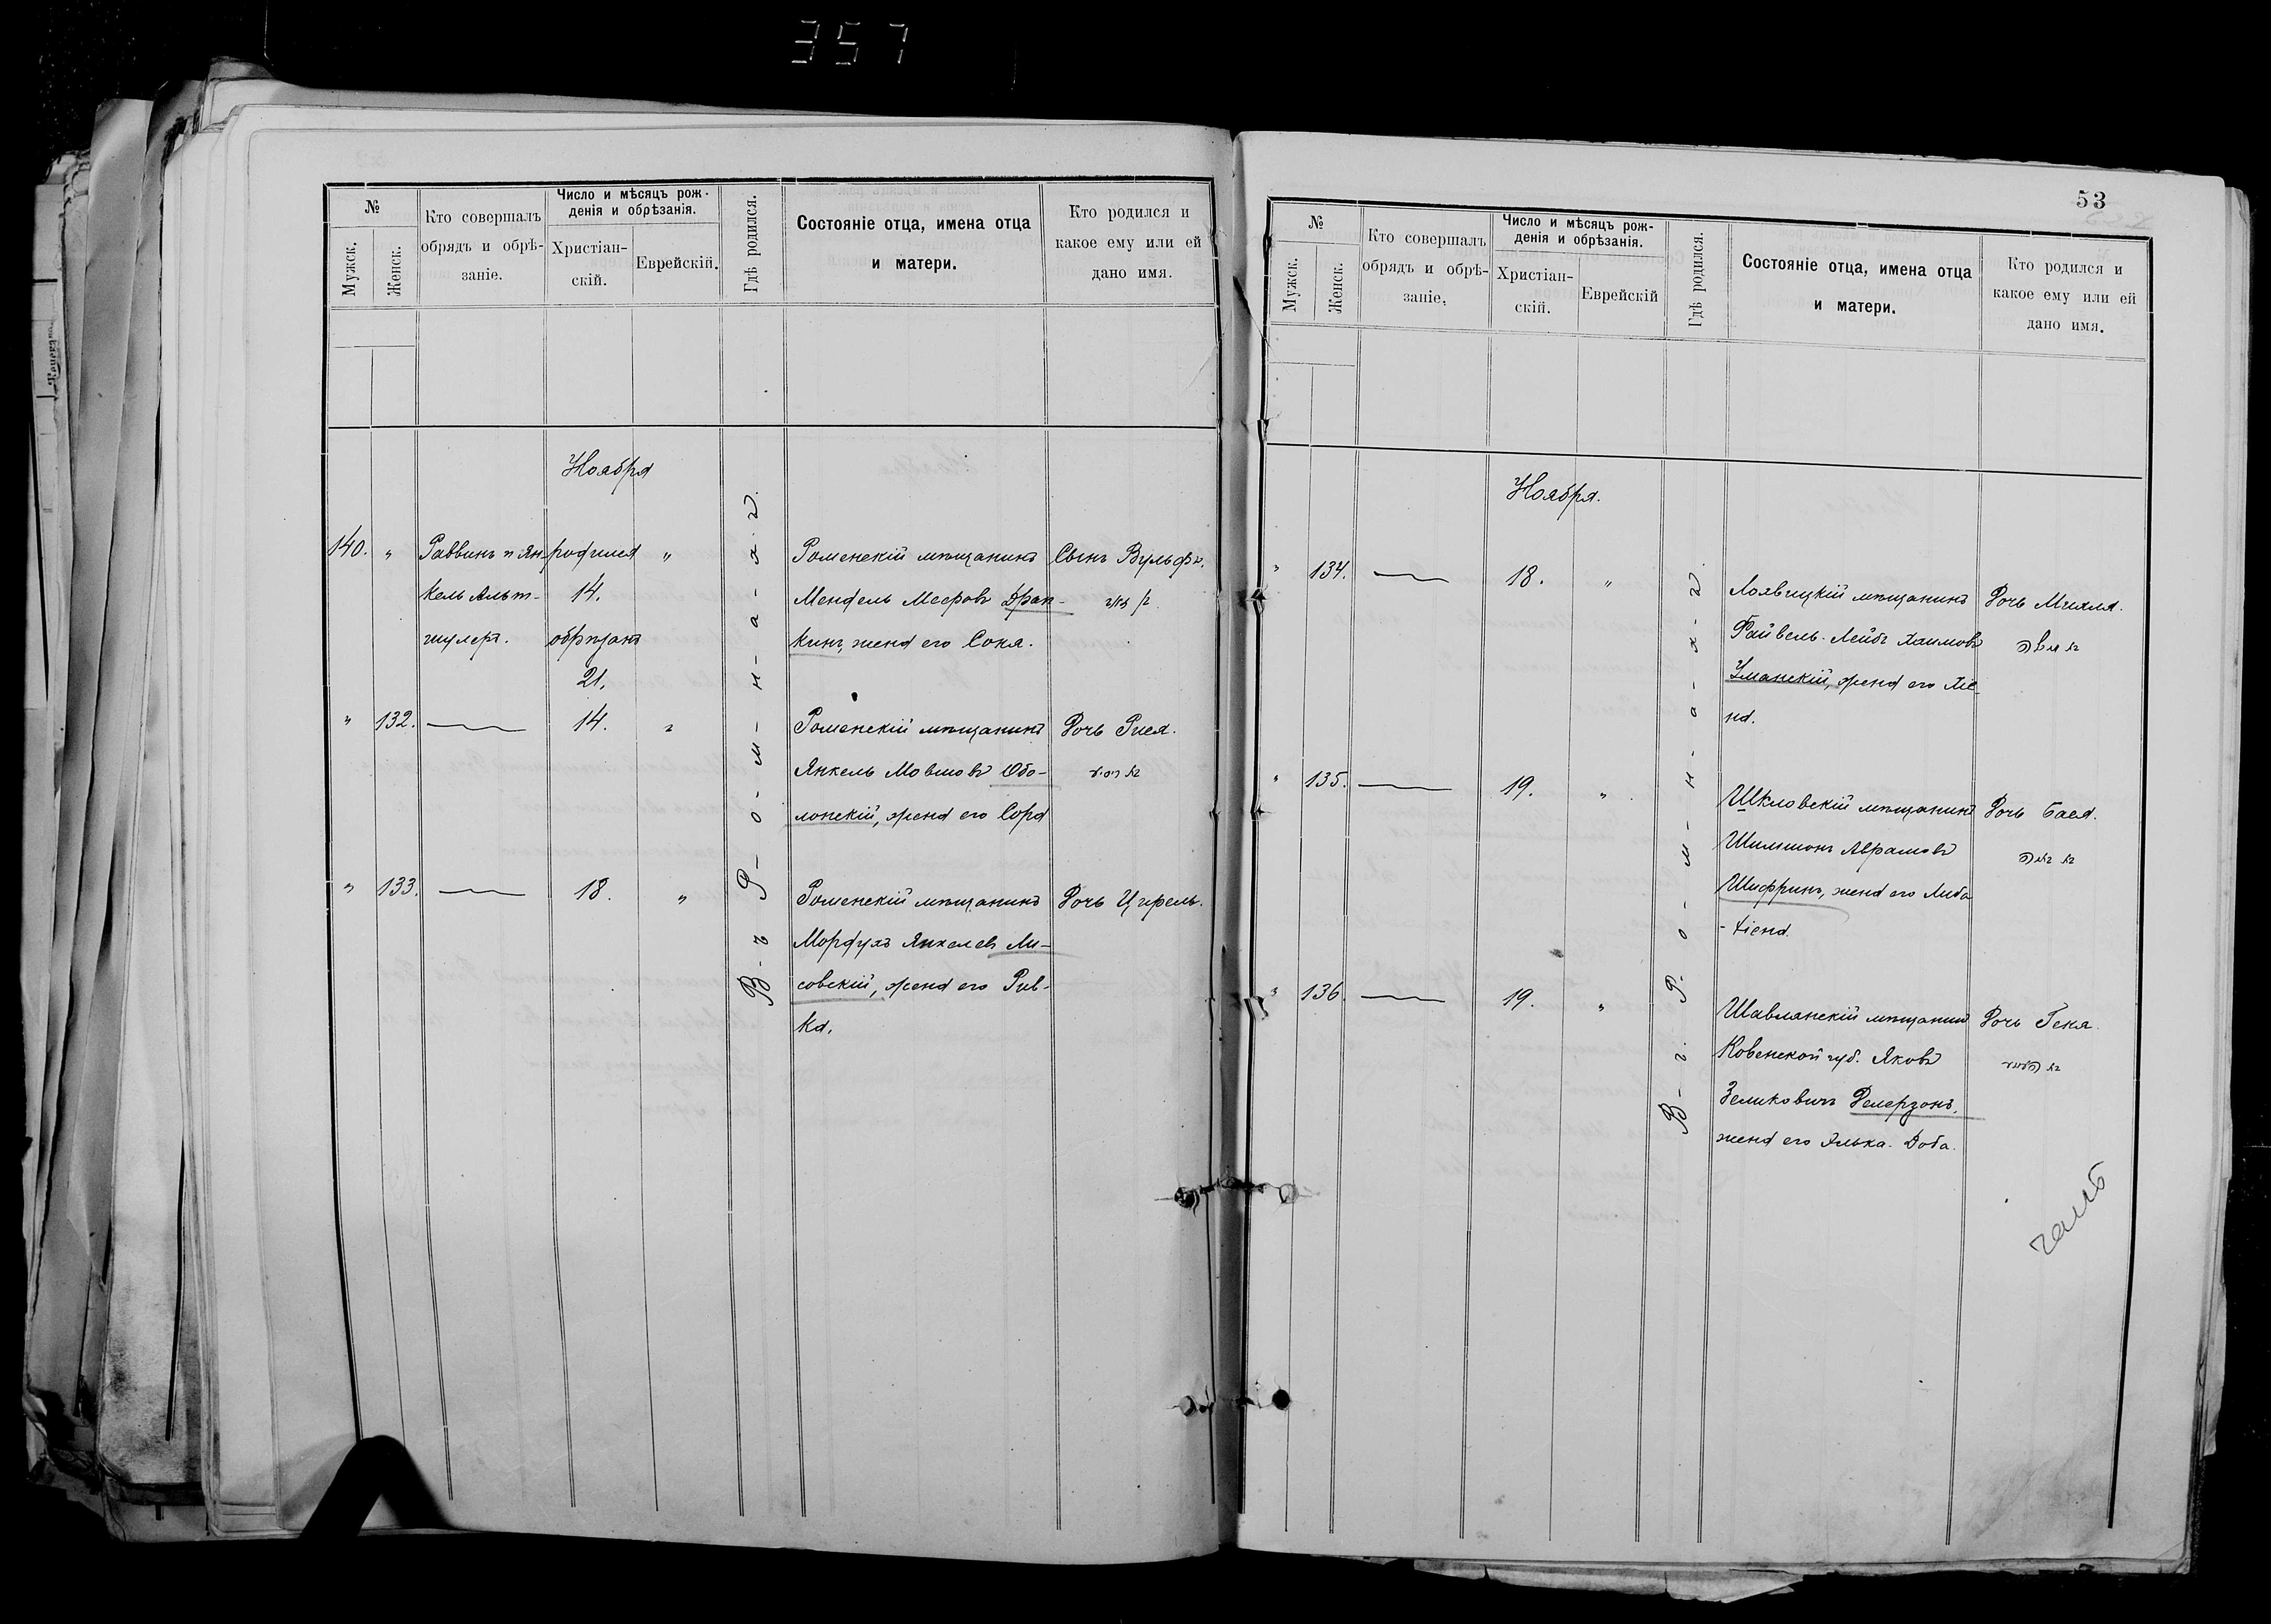 357
№
Мужск.
Женск.
Кто совершалъ
обрядъ и обрѣ-
заніе.
Число и мѣсяцъ рож-
денія и обрѣзанія.
Христіан-
скій.
Еврейскій.
Гдѣ родился.
Состояніе отца, имена отца
и матери.
Кто родился и
какое ему или ей
дано имя.
Ноября
В-ъ Р-о-м-н-а-х-ъ.
140. " Раввинъ и Ян- родился " Роменскій мѣщанинъ Сынъ Вульфъ.
кель Альт- 14. Мендель Мееровъ Драп-
шулеръ. обрѣзанъ кинъ, жена его Соня.
21.
" 132. 14. " Роменскій мѣщанинъ Дочь Рися.
Янкель Мовшовъ Обо-
лонскій, жена его Сора
" 133. 18. " Роменскій мѣщанинъ Дочь Цирель.
Мордухъ Янкелев Ли-
совскій, жена его Рив-
ка.
53
№
Мужск.
Женск.
Кто совершалъ
обрядъ и обрѣ-
заніе.
Число и мѣсяцъ рож-
денія и обрѣзанія.
Христіан-
скій.
Еврейскій
Гдѣ родился.
Состояніе отца, имена отца
и матери.
Кто родился и
какое ему или ей
дано имя.
Ноября.
В-ъ Р-о-м-н-а-х-ъ.
" 134. 18. " мѣщанинъ Дочь
Файвель-Лейбъ Хаимовъ
Уманскій, жена его
на.
" 135. 19. " Шкловскій мѣщанинъ Дочь Бася.
Шимшонъ Абрамовъ
Шифринъ, жена его Либа
" 136. 19. " Шавлянскій мѣщанинъ Дочь Геня.
Ковенской губ. Яковъ
Зеликовичъ
жена его Элька-Доба.